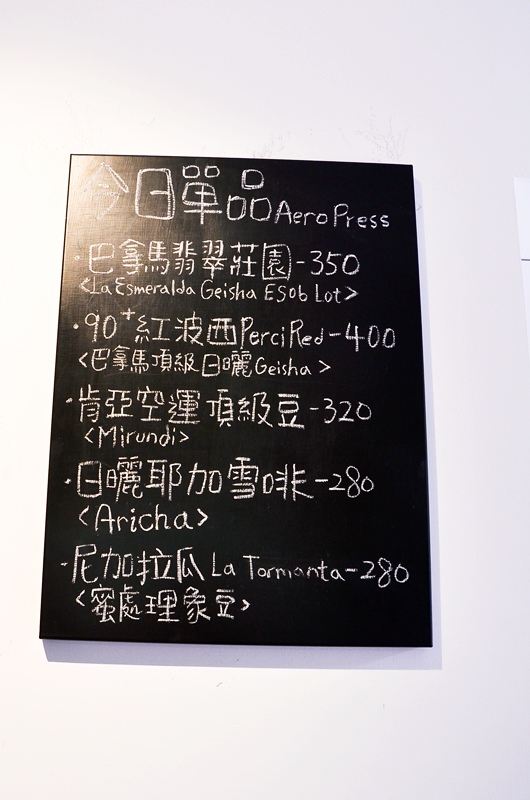 今日單品 AeroPress
·巴拿馬翡翠莊園-350
<La Esmeralda Geisha ESob Lot>
·90⁺紅波西Perci Red-400
<巴拿馬頂級日曬Geisha>
·肯亞空運頂級豆-320
<Mirundi>
·日曬耶加雪啡-280
<Aricha>
·尼加拉瓜 La Tormanta-280
<蜜處理象豆>